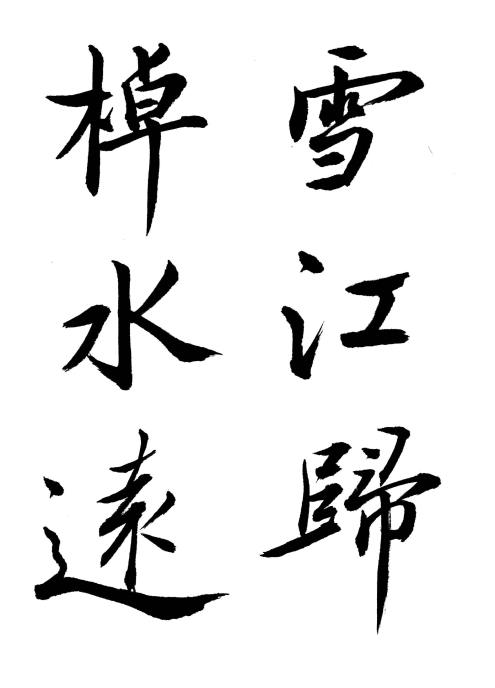 雪江歸
棹水遠